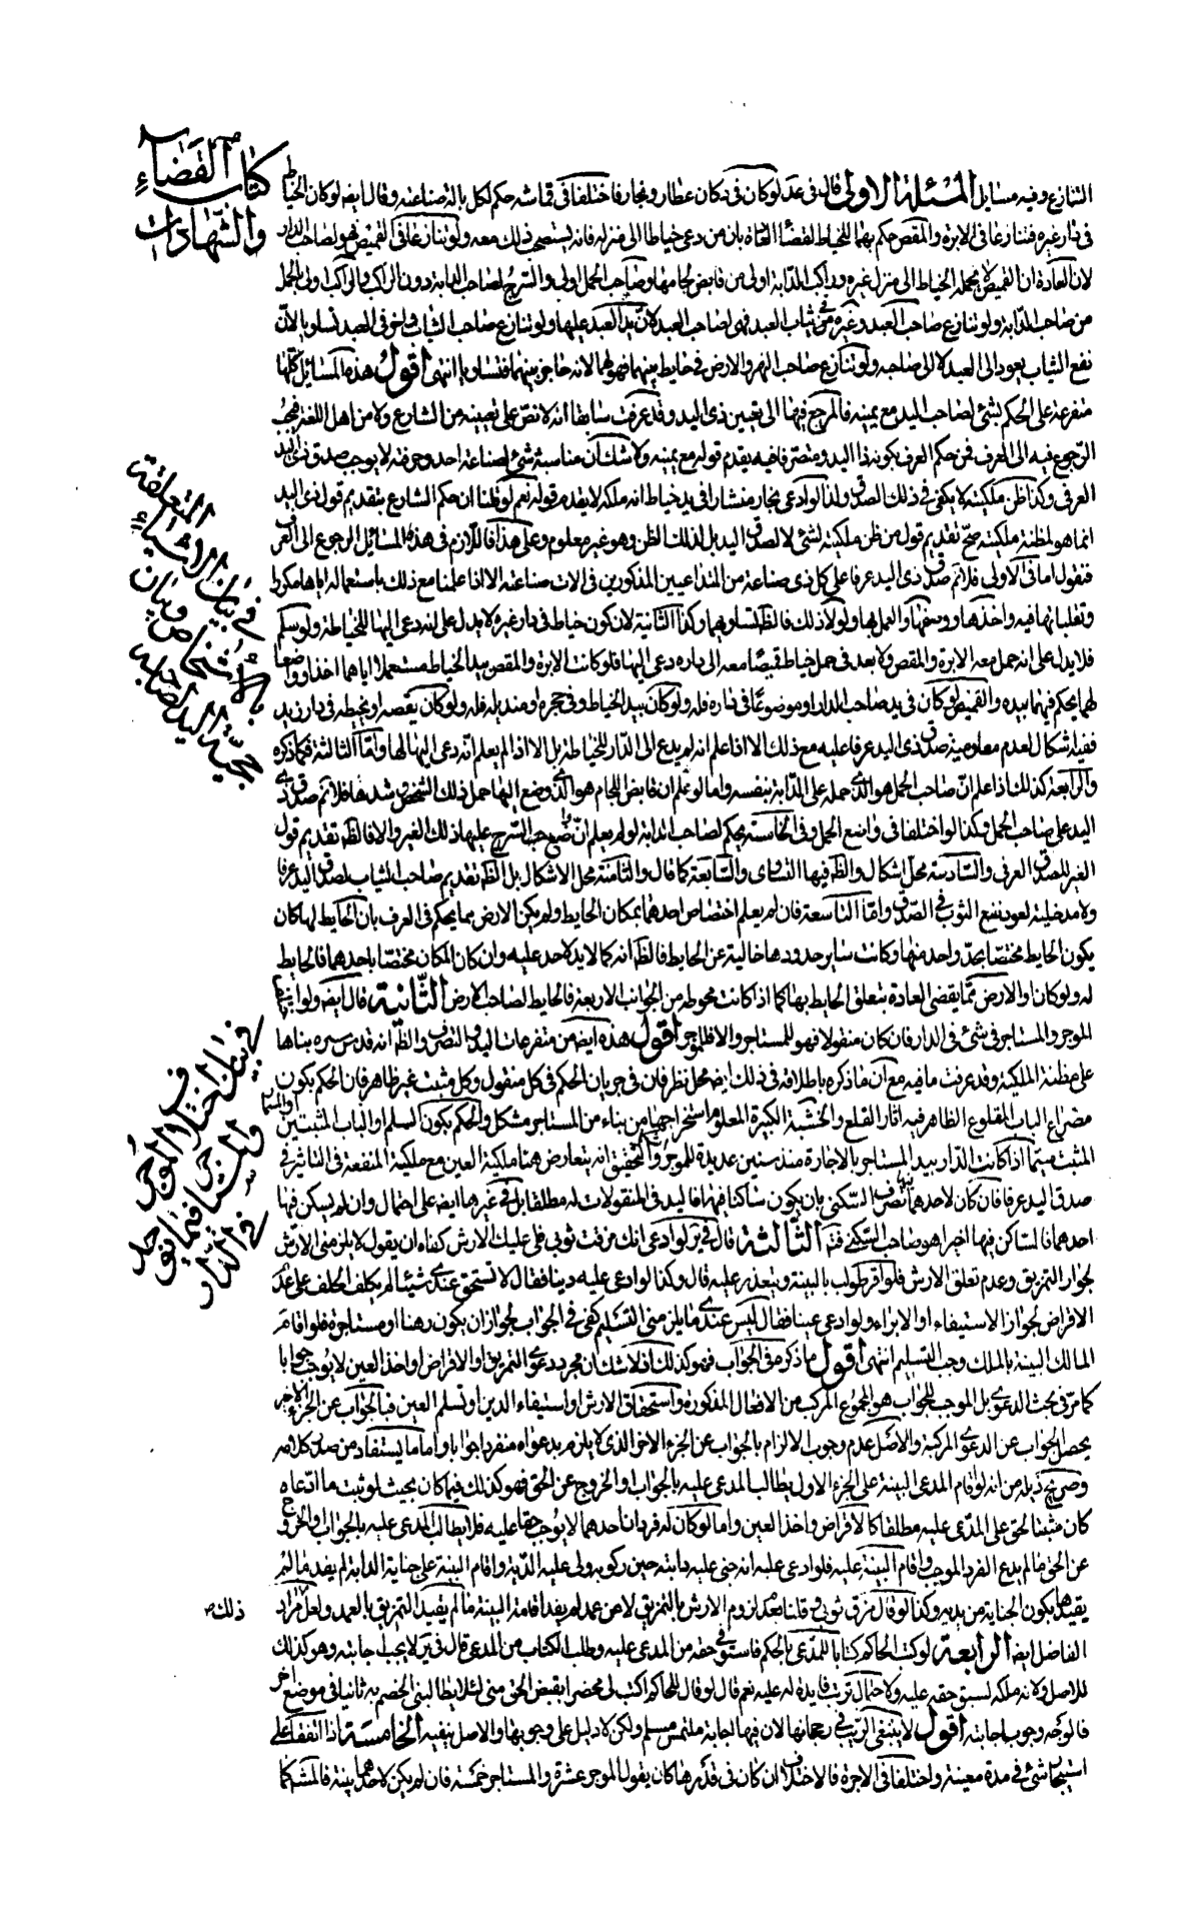 كتاب القضاء
والشهادات
التنازع وفيه مسايل المسئلة الاولى قال فى عد لو كان فى دكان عطار ونجار فاختلفا فى قماشه حكم لكل بالة صناعته وقال ايضا لو كان الخياط
فى دار غيره فتنازعا فى الابرة والمقص حكم بهما للخياط لقضاء العادة بان من دعى خياطا الى منزله فانه يستصحب ذلك معه ولو تنازعا فى القميص فهو لصاحب الدار
لان العادة ان القميص لا يحمله الخياط الى منزل غيره وراكب الدابة اولى من قابض لجامها وصاحب الحمل اولى والسرج لصاحب الدابة دون الراكب والراكب اولى بالحمل
من صاحب الدابة ولو تنازع صاحب العبد وغيره فى ثياب العبد فهى لصاحب العبد لان يد العبد عليها ولو تنازع صاحب الثياب واخر فى العبد تساويا لان
نفع الثياب يعود الى العبد لا الى صاحبه ولو تنازع صاحب النهر والارض فى حايط بينهما فهو لهما لانه حاجز بينهما فتساويا انتهى اقول هذه المسائل كلها
متفرعة على الحكم بشئ لصاحب اليد مع يمينه فالمرجع فيها الى تعيين ذى اليد وقد عرفت سابقا انه لا نص على تعيينه من الشارع ولا من اهل اللغة فيجب
الرجوع فيه الى العرف فمن حكم العرف بكونه ذا اليد ومتصرفا فيه يقدم قوله مع يمينه ولا شك ان مناسبة شئ لصناعة احد وحرفته لا يوجب صدق ذى اليد
العرفى وكذا ظن ملكيته لا يكفى فى ذلك الصدق ولذا لو ادعى نجار منشارا فى يد خياط انه ملكه لا يقدم قوله نعم لو ظننا ان حكم الشارع بتقديم قول ذى اليد
انما هو لمظنة ملكيته صح تقديم قول من ظن ملكيته لشئ لا لصدق اليد بل لذلك الظن وهو غير معلوم وعلى هذا فاللازم فى هذه المسائل الرجوع الى العرف
فنقول اما فى الاولى فلا نم صدق ذى اليد عرفا على كل ذى صناعة من المتداعيين المذكورين فى الات صناعته الا اذا علمنا مع ذلك باستعماله اياها مكررا
وتقلباتها فيه واخذها ووضعها والعمل بها ولولا ذلك فالظ تساويهما وكذا الثانية لان كون خياط فى دار غيره لا يدل على انه دعى اليها للخياطة ولو سلم
فلا يدل على انه حمل معه الابرة والمقص ولا بعد فى حمل خياط قميصا معه الى داره دعى اليها فلو كانت الابرة والمقص بيد الخياط مستعملا اياهما اخذا وواضعا
لهما يحكم فيهما بيده والقميص لو كان فى يد صاحب الدار او موضوعا فى داره فله ولو كان بيد الخياط وفى حجره او منديله فله ولو كان يقصه او يخيطه فى دار زيد
ففيه اشكال لعدم معلومية صدق ذى اليد عرفا عليه مع ذلك الا اذا علم انه لم يدع الى الدار للخياطة بل الا اذا لم يعلم انه دعى اليها لها واما الثالثة فكما ذكره
والرابعة كذلك اذا علم ان صاحب الحمل هو الذى حمله على الدابة بنفسه واما لو علم ان قابض اللجام هو الذى وضع اليها حمل ذلك الشخص شدها فلا نم صدق ذى
اليد على صاحب الحمل وكذا لو اختلفا فى واضع الحمل وفى الخامسة يحكم لصاحب الدابة لو لم يعلم ان واضع السرج عليها ذلك الغير والا فالظ تقديم قول
الغير للصدق العرفى والسادسة محل اشكال والظ فيها التساوى والسابعة كما قال والثامنة محل الاشكال بل الظ تقديم صاحب الثياب لصدق اليد عرفا
ولا مدخلية لعود نفع الثوب فى الصدق واما التاسعة فان لم يعلم اختصاص احدهما بمكان الحايط ولم يكن الارض مما يحكم فى العرف بان الحايط لها كان
يكون الحايط مختصا بحد واحد منها وكانت ساير حدودها خالية عن الحايط فالظ انه كما لا يد لاحد عليه وان كان المكان مختصا باحدهما فالحايط
له ولو كان والارض مما يقضى العادة بتعلق الحايط بها كما اذا كانت محوطه من الجوانب الاربعة فالحايط لصاحب الارض الثانية قال ايضا ولو تنازعا
الموجر والمستاجر فى شئ فى الدار فان كان منقولا فهو للمستاجر والا فللموجر اقول هذه ايضا من متفرعات اليد والتصرف والظ انه قدس سره بناها
على مظنة الملكية وقد عرفت ما فيه مع ان ما ذكره باطلاقه فى ذلك ايضا محل نظر فان فى جريان الحكم فى كل منقول وكل مثبت غير ظاهر فان الحكم بكون
مصراع الباب المقلوع الظاهر فيه اثار القلع والخشبة الكبيرة المعلوم استخراجها من بناء من المستاجر مشكل والحكم بكون السلم او الباب المثبتين
المثبت سيما اذا كانت الدار بيد المستاجر بالاجارة منذ سنين عديدة للموجر والتحقيق انه يتعارض هنا ملكية العين مع ملكية المنفعة فى التاثير فى
صدق اليد عرفا فان كان لاحدهما تصرف السكنى بان يكون ساكنا فيها فاليد فى المنقولات له مطلقا بل فى غيرها ايضا على احتمال وان لم يسكن فيها
احدهما فالساكن فيها اخيرا هو صاحب السكنى فتم الثالثة قال فى ير لو ادعى انك مزقت ثوبى فلى عليك الارش كفاه ان يقول لا يلزمنى الارش
لجواز التمزيق وعدم تعلق الارش فلو اقر طولب بالبينة ويتعذر عليه قال وكذا لو ادعى عليه دينا فقال لا تستحق عندى شيئا لم يكلف الحلف على عدم
الاقراض لجواز الاستيفاء او الابراء ولو ادعى عينا فقال ليس عندى ما يلزمنى التسليم كفى فى الجواب لجواز ان يكون رهنا او مستاجرة فلو اقام
المالك البينة بالملك وجب التسليم انتهى اقول ما ذكره فى الجواب فهو كذلك اذ لا شك ان مجرد دعوى التمزيق او الاقراض او اخذ العين لا يوجب جوابا
كما مر فى بحث الدعوى بل الموجب للجواب هو المجموع المركب من الافعال المذكورة واستحقاق الارش او استيفاء الدين او تسلم العين فبالجواب عن الجزء الاخر
يحصل الجواب عن الدعوى المركبة والاصل عدم وجوب الالزام بالجواب عن الجزء الاخر الذى لا يلزم بدعواه منفردا جوابا واما ما يستفاد من صدر كلامه
وصريح ذيله من انه لو اقام المدعى البينة على الجزء الاول يطالب المدعى عليه بالجواب او الخروج عن الحق فهو كذلك فيما كان بحيث لو ثبت ما ادعاه
كان مثبتا للحق على المدعى عليه مطلقا كالاقراض واخذ العين واما لو كان له فردان احدهما لا يوجب حقا عليه فلا يطالب المدعى عليه بالجواب او الخروج
عن الحق ما لم يدع الفرد الموجب واقام البينة عليه فلو ادعى عليه انه جنى عليه دابته حين ركوبه ولى عليه الدية واقام البينة على جناية الدابة لم يفد ما لم
يقيدها بكون الجناية من يديه وكذا لو قال مزق ثوبى وقلنا بعدم لزوم الارش بالتمزيق لا من عمد لم يفد اقامة البينة ما لم يقيد التمزيق بالعمد ولعل مراد
الفاضل ايضا ذلك الرابعة لو كتب الحاكم كتابا للمدعى بالحكم فاستوفى حقه من المدعى عليه وطلب الكتاب من المدعى قال فى ير لا يجب اجابته وهو كذلك
للاصل ولانه ملكه لسبق حقه عليه ولاحتمال ترتب فايدة له عليه نعم قال لو قال للحاكم اكتب لى محضرا بقبض الحق منى لئلا يطالبنى الخصم به ثانيا فى موضع اخر
فالوجه وجوب اجابته اقول لا ينبغى الريب فى رجحانها لان فيها اجابة ملتمس مسلم ولكن لا دليل على وجوبها والاصل ينفيه الخامسة اذا اتفقا على
استيجار شئ فى مدة معينة واختلفا فى الاجرة فالاختلاف ان كان فى قدرها كان يقول الموجر عشرة والمستاجر خمسة فان لم يكن لاحدهما بينة فالمشهور كما
المتعلقة
فى بيان الاشياء
بالاشخاص وبيان
حجية اليد لصاحبه
فى بيان اختلاف
الموجر
والمستاجر فيما يوجد
فى الدار
ذلك